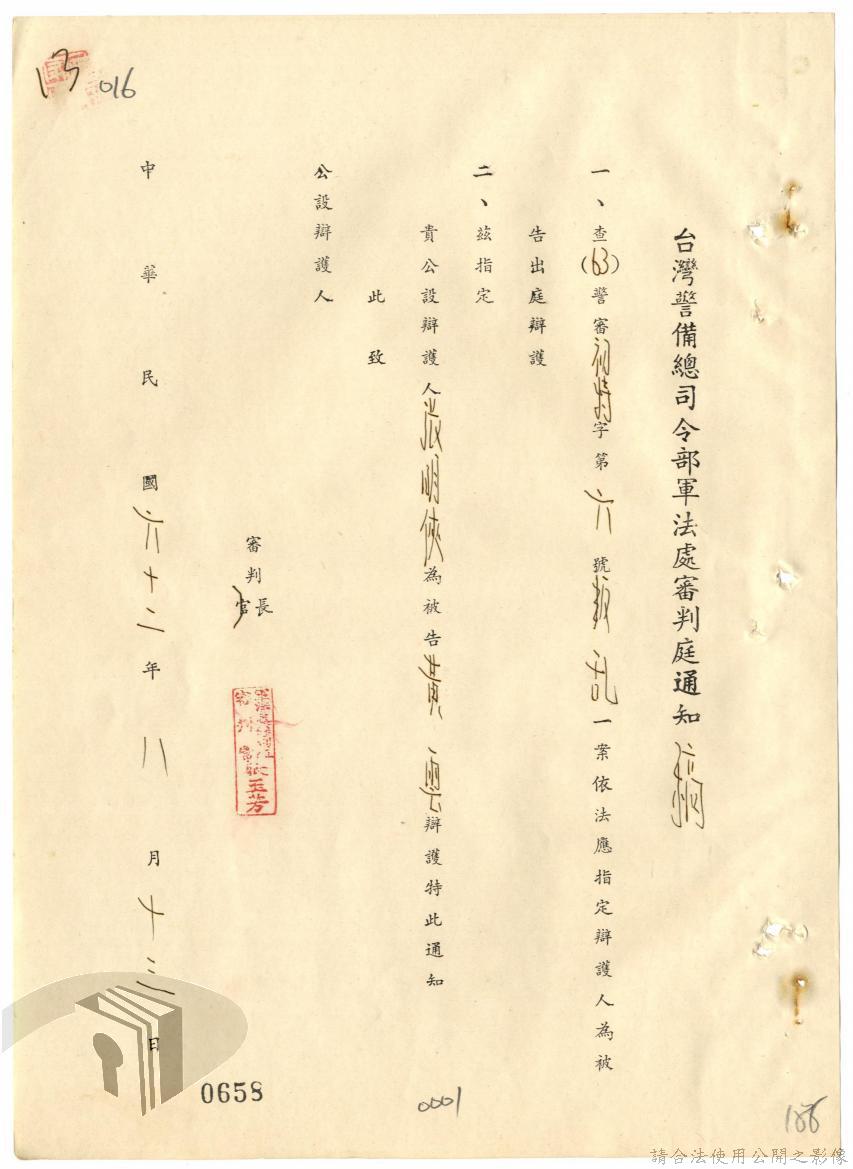 13
016
台灣警備總司令部軍法處審判庭通知稿
一、查(63)警審初特字第六號叛乱一案依法應指定辯護人為被
告出庭辯護
二、茲指定
貴公設辯護人張明俠為被告黃辯護特此通知
此致
公設辯護人
審判長
官
玉芳
中華民國六十三年八月十三日
0658
0001
請合法使用公開之影像